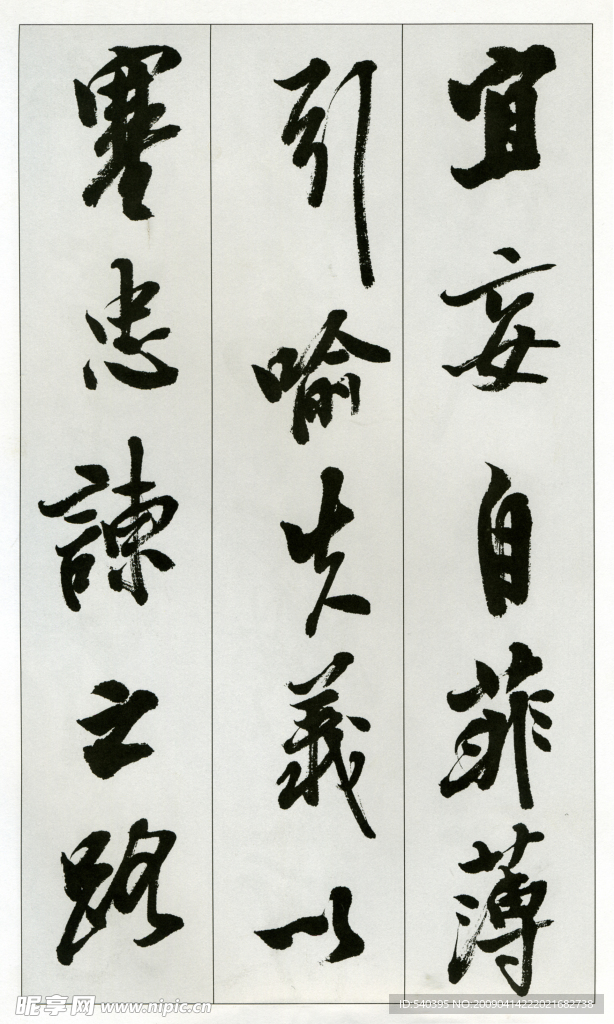 宜妄自菲薄
引喻失義以
塞忠諫之路
昵享网 www.nipic.cn
ID:540395 NO:20090414222021682738